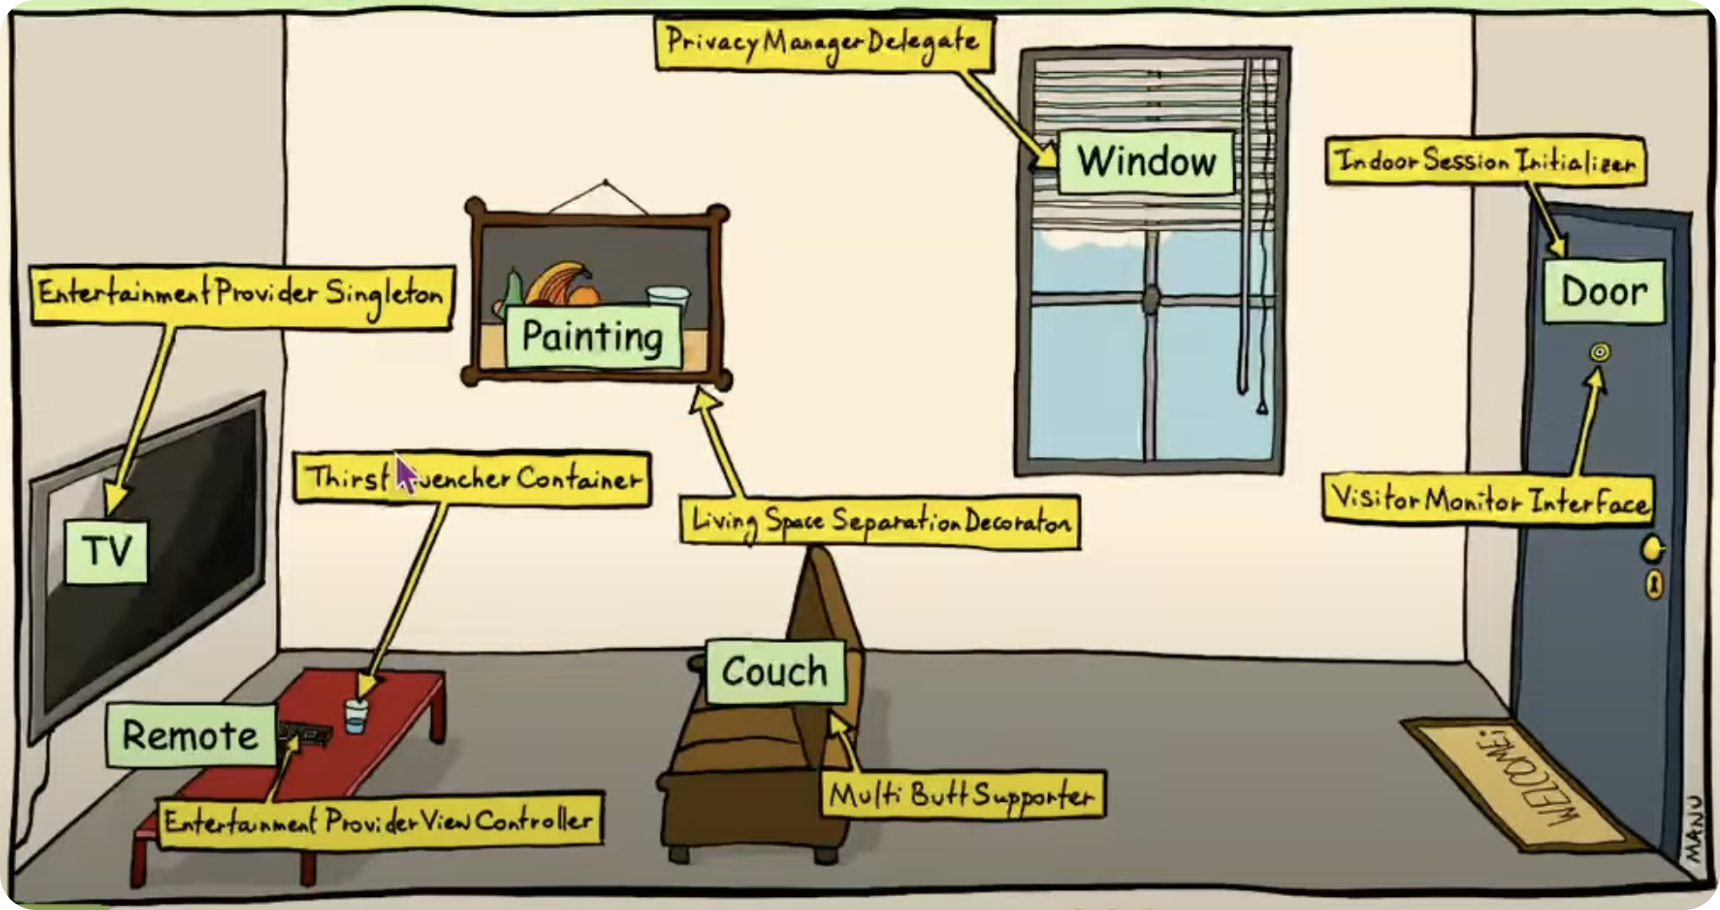 Privacy Manager Delegate
Window
Indoor Session Initializer
Door
Entertainment Provider Singleton
Painting
Thirst Container
Living Space Separation Decorator
Visitor Monitor Interface
TV
Couch
Remote
Multi Butt Supporter
Entertainment Provider View Controller
WELCOME!
MANU